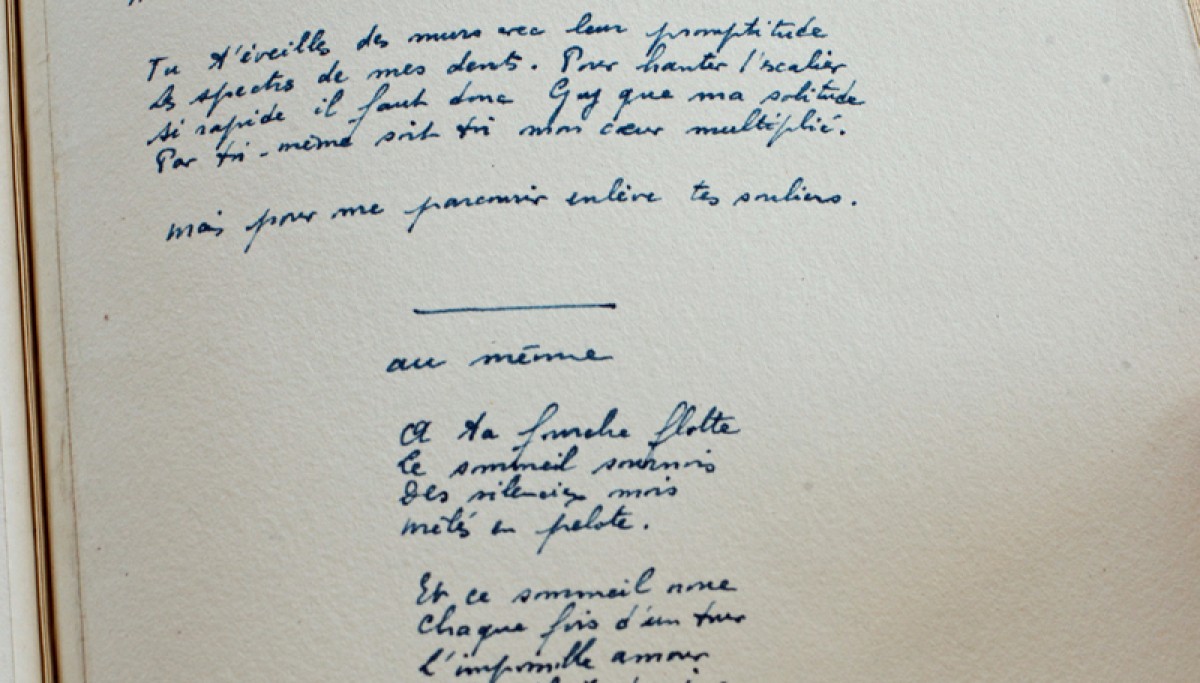 Tu t'éveilles des murs avec leur promptitude
Les spectres de mes dents. Pour hanter l'escalier
Si rapide il faut donc Guy que ma solitude
Par toi-même soit toi mon cœur multiplié.
Mais pour me parcourir enlève tes souliers.
au même
A ta fourche flotte
Le sommeil sournois
Des silencieux mois
Mêlés en pelote.
Et ce sommeil noue
Chaque fois d'un tour
L'impossible amour